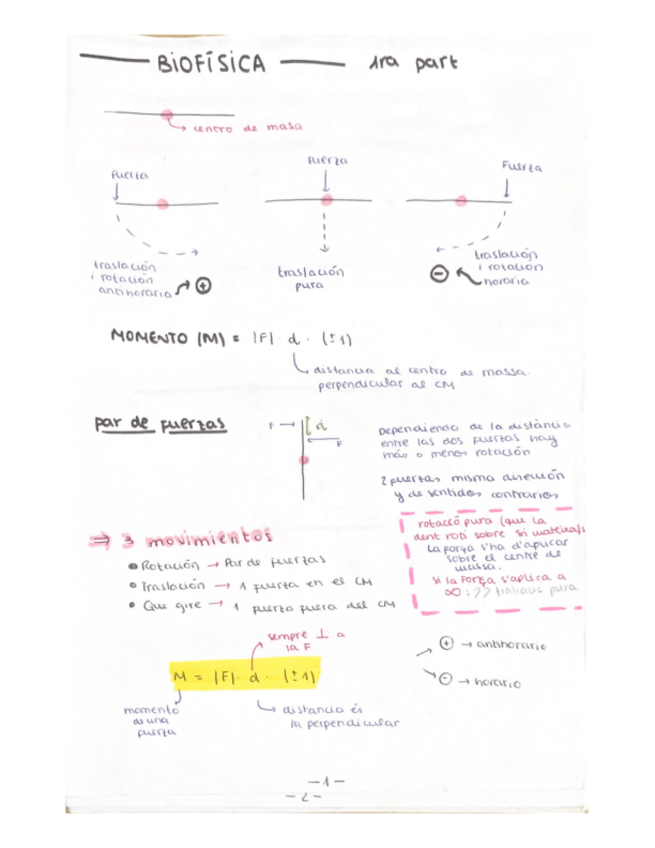 BIOFÍSICA 1ra part
centro de masa
Fuerza
Fuerza
Fuerza
traslación
i rotación
antihoraria
+
traslación
pura
traslación
i rotación
horaria
−
MOMENTO (M) = |F| · d · (±1)
distancia al centro de massa.
perpendicular al CM
par de fuerzas
F
d
F
Dependiendo de la distancia
entre las dos fuerzas hay
más o menos rotación
2 fuerzas misma dirección
y de sentidos contrarios
⇒ 3 movimientos
• Rotación → Par de fuerzas
• Traslación → 1 fuerza en el CM
• Que gire → 1 fuerza fuera del CM
rotació pura (que la
dent roti sobre si mateixa)
La força s'ha d'aplicar
sobre el centre de
massa.
Si la Força s'aplica a
∞ : ?? pura
sempre ⊥ a
la F
M = |F| · d · (±1)
momento
de una
fuerza
distancia és
la perpendicular
+ → antihorario
− → horario
—1—
—2—